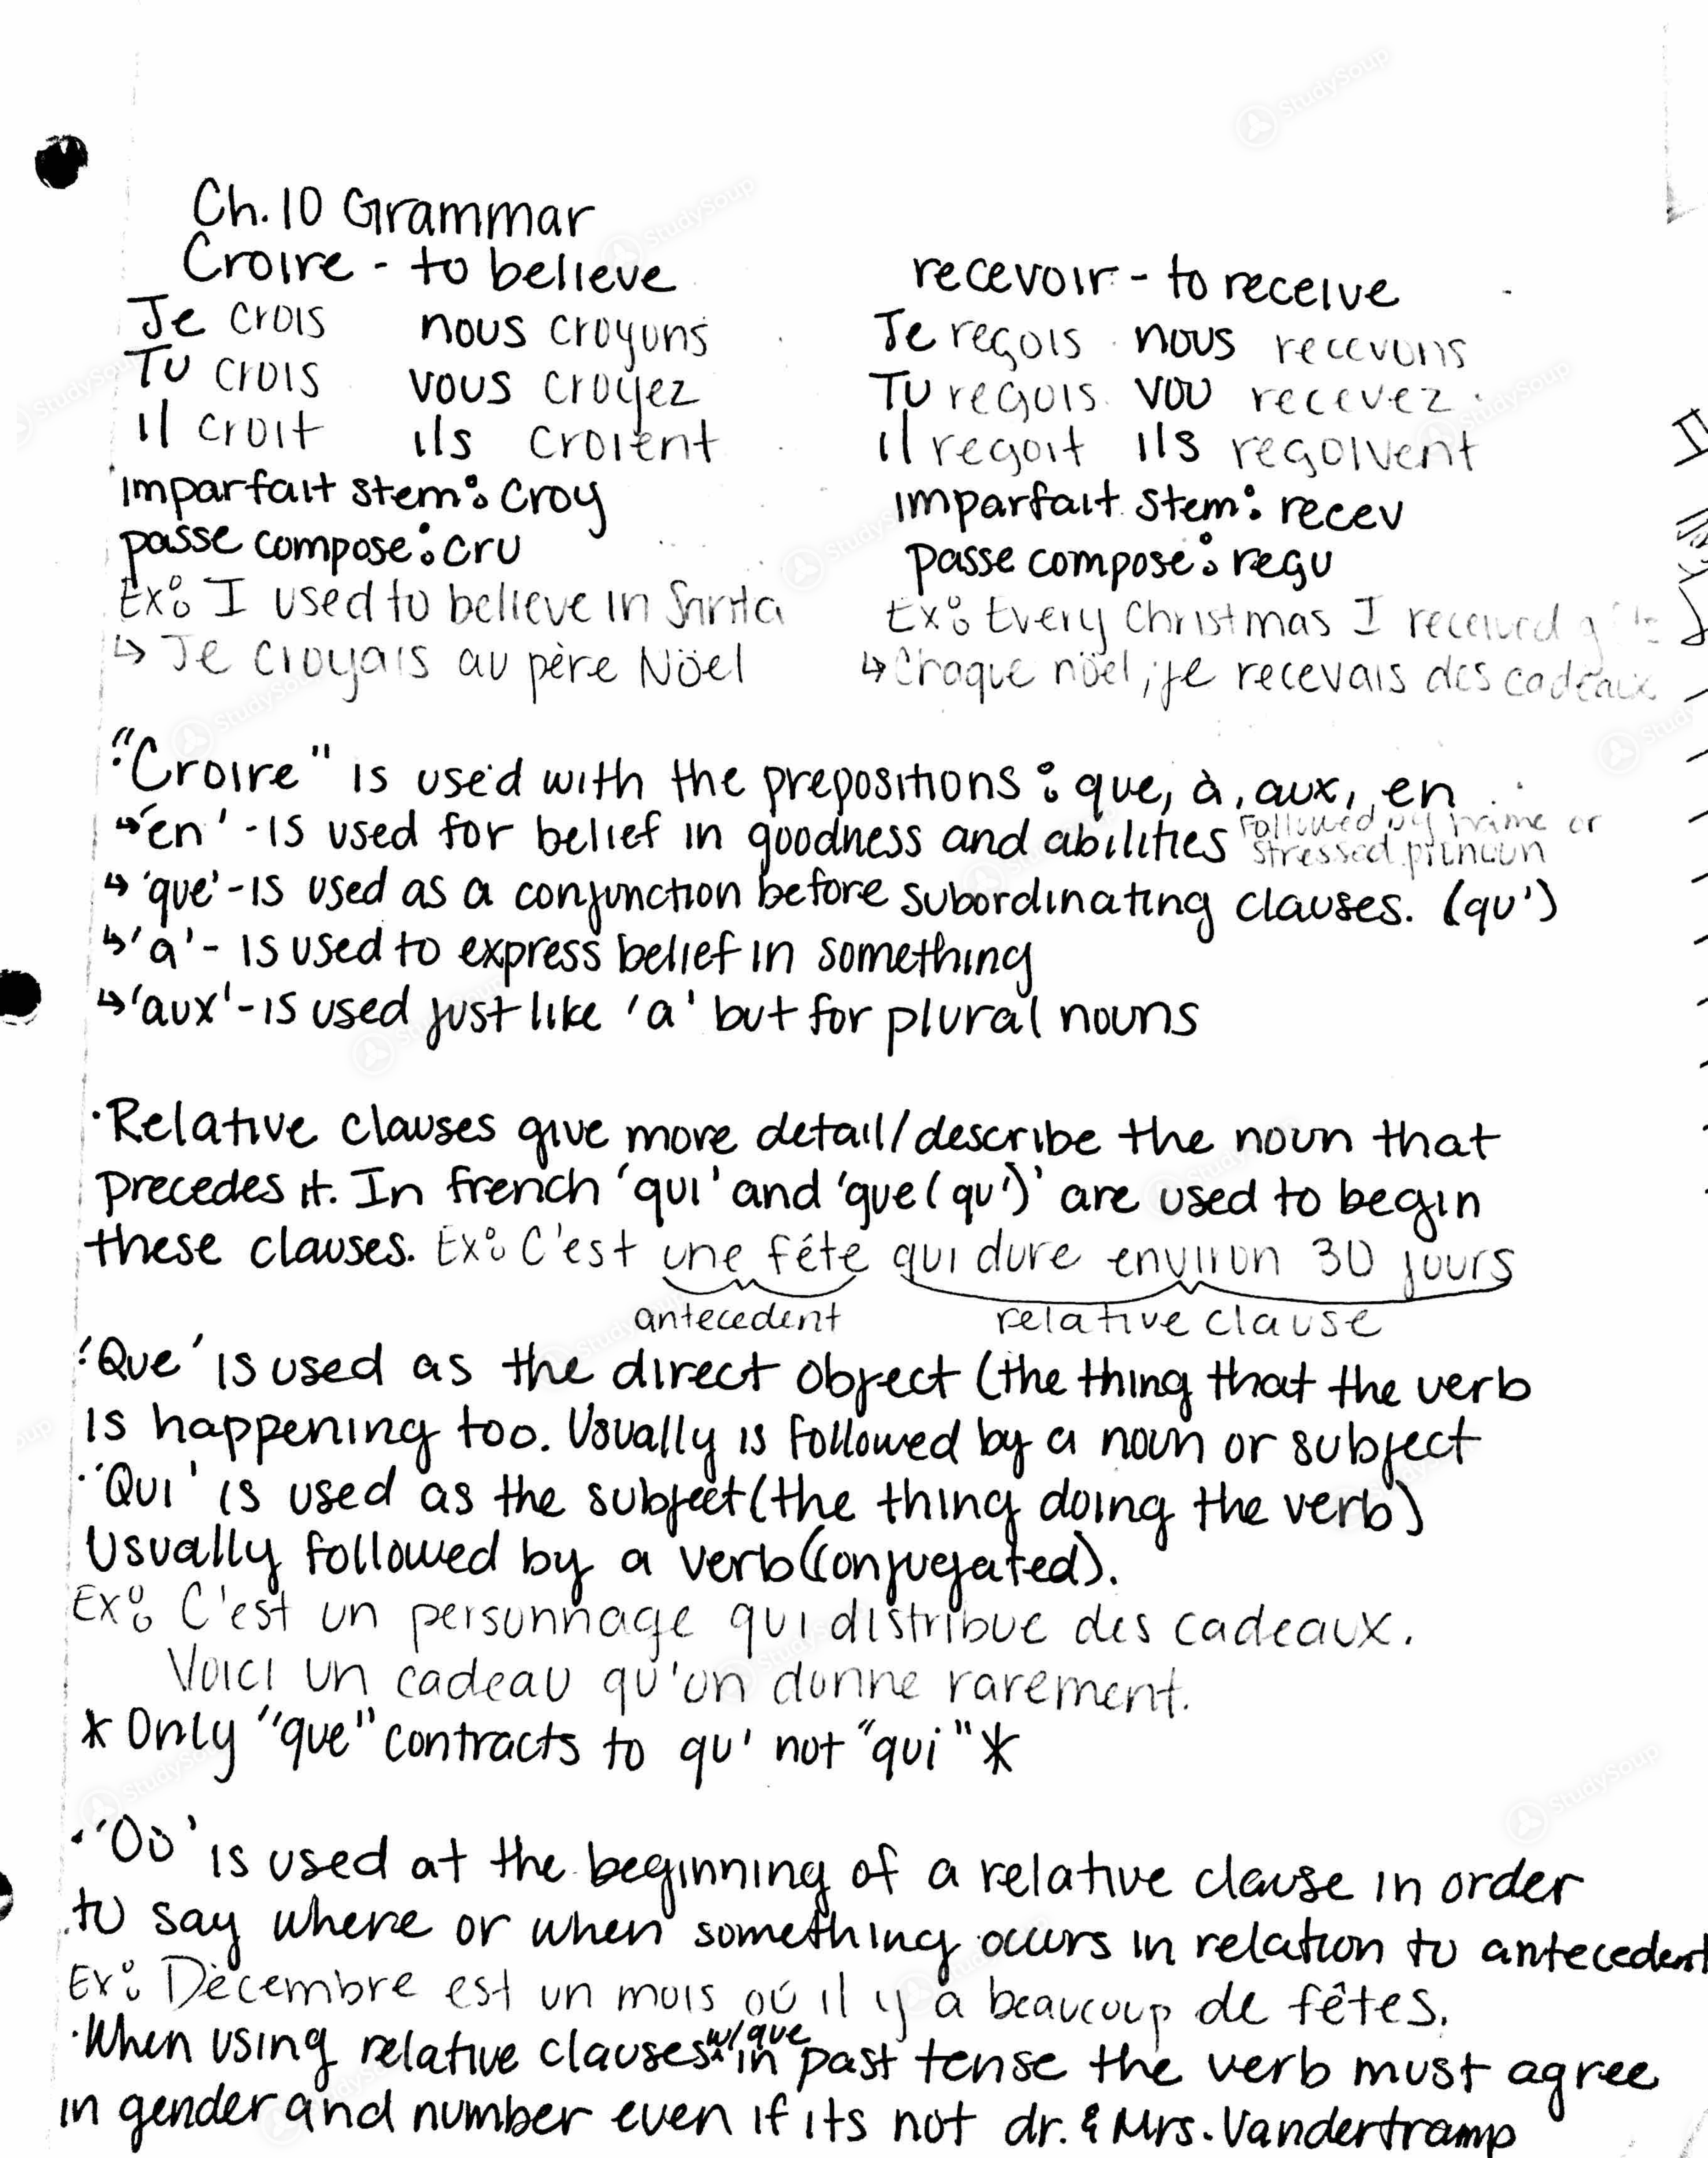 Ch. 10 Grammar
Croire - to believe
Je crois nous croyons
Tu crois vous croyez
il croit ils croient
imparfait stem: croy
passe compose: cru
Ex: I used to believe in Santa
↳ Je croyais au père Nöel
recevoir - to receive
Je reçois nous recevons
Tu reçois vou recevez
il reçoit ils reçoivent
imparfait stem: recev
passe compose: reçu
Ex: Every Christmas I received
↳ Chaque nöel, je recevais des cadeaux
"Croire" is used with the prepositions: que, à, aux, en
↳ 'en' - is used for belief in goodness and abilities followed by name or
stressed pronoun
↳ 'que' - is used as a conjunction before subordinating clauses. (qu')
↳ 'a' - is used to express belief in something
↳ 'aux' - is used just like 'a' but for plural nouns
· Relative clauses give more detail/describe the noun that
precedes it. In french 'qui' and 'que (qu')' are used to begin
these clauses. Ex: C'est une féte qui dure environ 30 jours
antecedent relative clause
'Que' is used as the direct object (the thing that the verb
is happening too. Usually is followed by a noun or subject
· 'Qui' is used as the subject (the thing doing the verb)
Usually followed by a verb (conjugated).
Ex: C'est un personnage qui distribue des cadeaux.
Voici un cadeau qu'on donne rarement.
* Only "que" contracts to qu' not "qui" *
· 'Où' is used at the beginning of a relative clause in order
to say where or when something occurs in relation to antecedent
Ex: Décembre est un mois où il y a beaucoup de fêtes.
· When using relative clauses w/que in past tense the verb must agree
in gender and number even if its not dr. & Mrs. Vandertramp
StudySoup